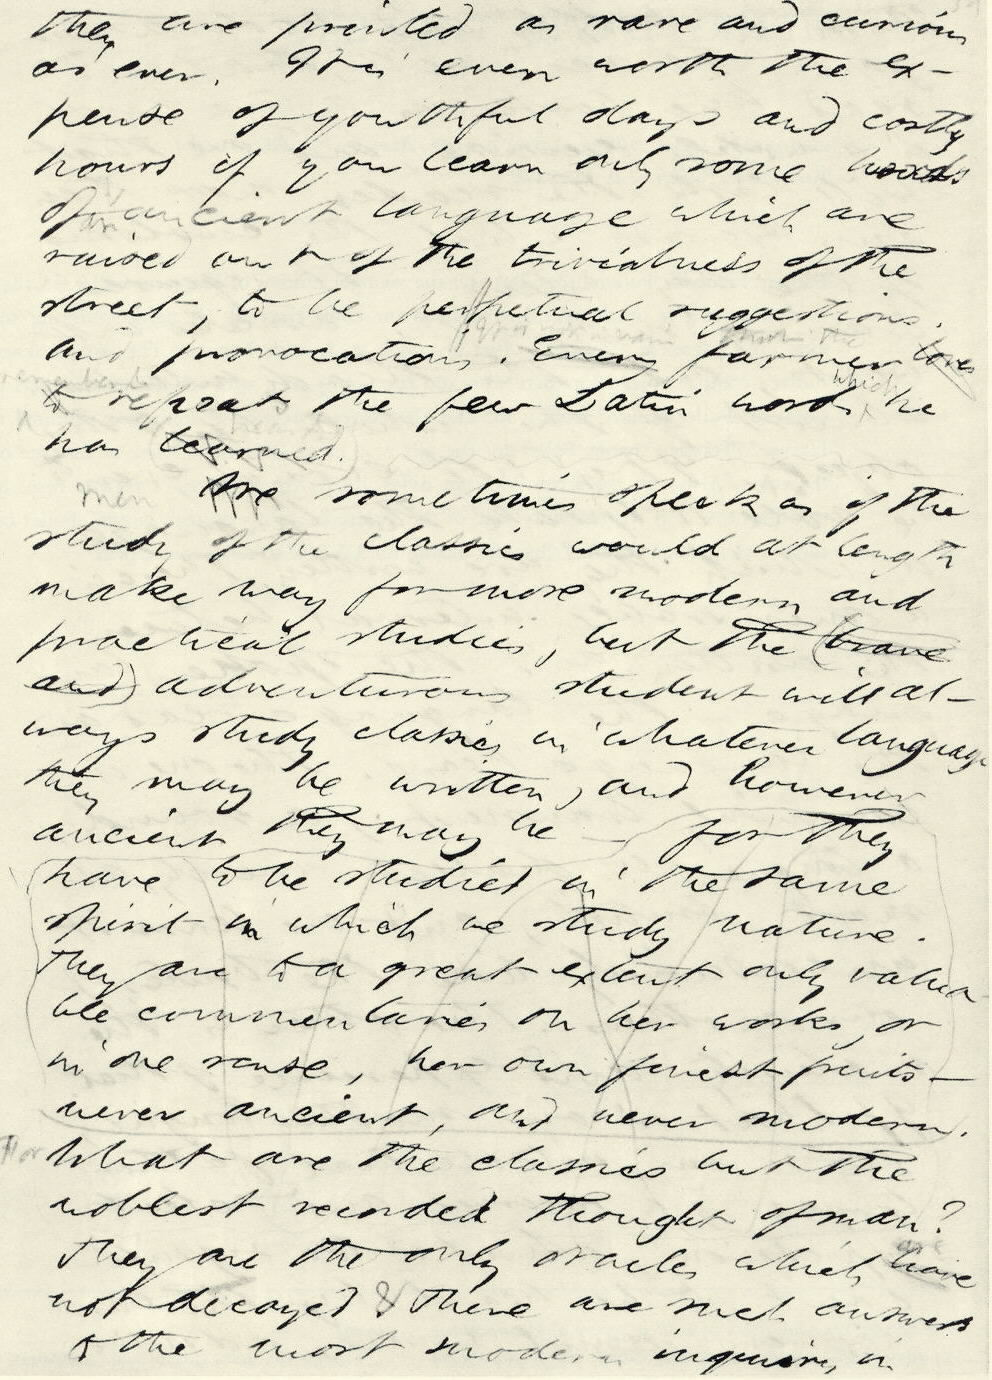 they are printed as rare and curious
as ever. It is even worth the ex-
pense of youthful days and costly
hours if you learn only some words
of an ancient language which are
raised out of the trivialness of the
street, to be perpetual suggestions
and provocations. Every farmer loves
remembers
to repeats the few Latin words which he
has learned.
men We sometimes speak as if the
study of the classics would at length
make way for more modern and
practical studies, but the (brave
and) adventurous student will al-
ways study classics in whatever language
they may be written, and however
ancient they may be — for they
have to be studied in the same
spirit in which we study nature.
They are to a great extent only valua
ble commentaries on her works, or
in one sense, her own finest fruits —
never ancient, and never modern.
For What are the classics but the
noblest recorded thought of man?
They are the only oracles which are have
not decayed & there are such answers
to the most modern inquiry in